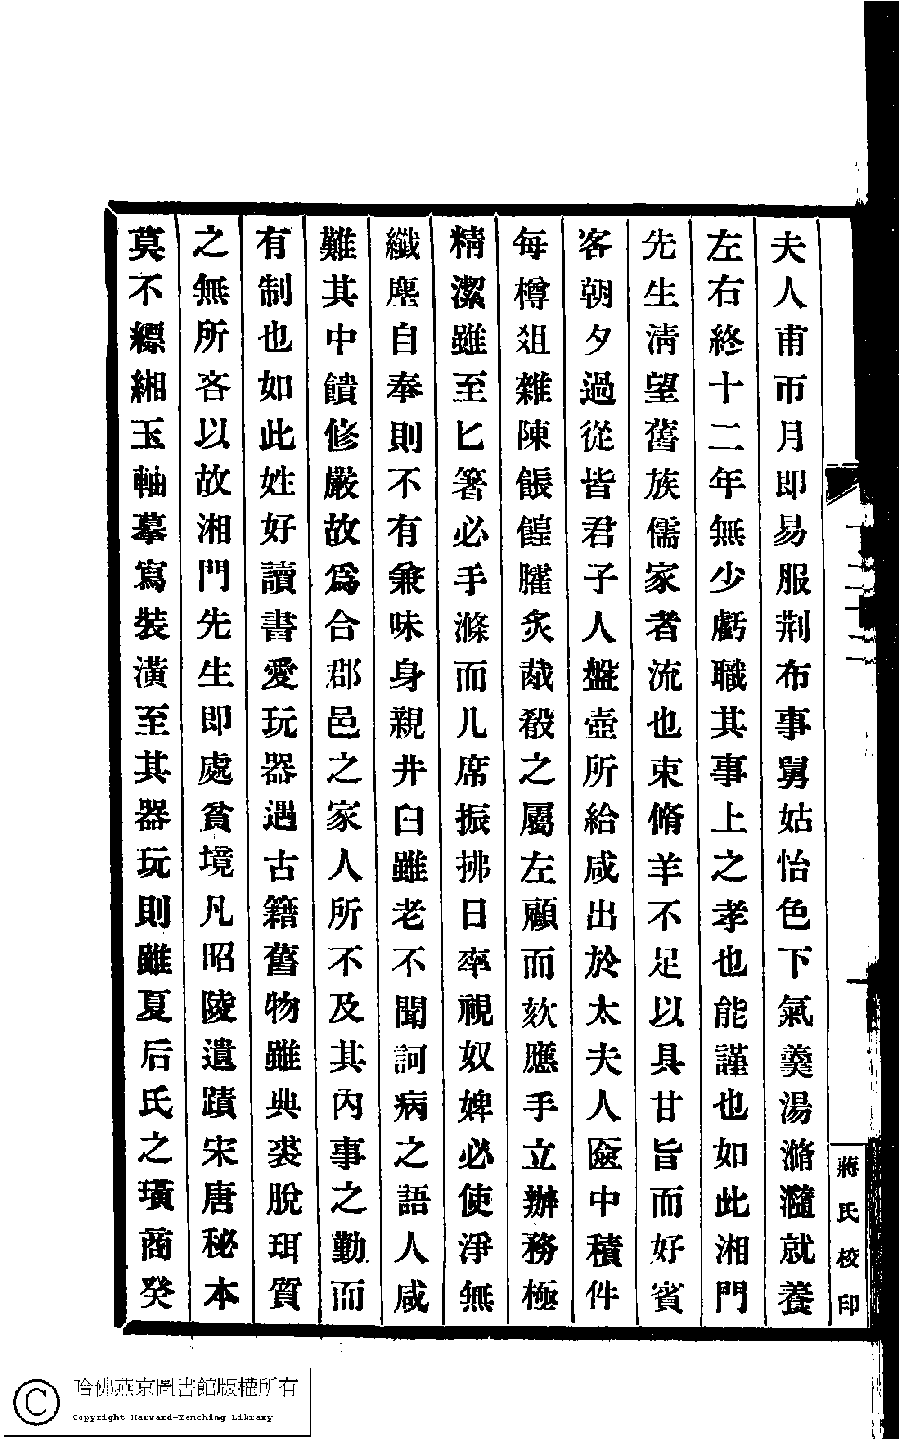 夫人甫帀月即易服荆布事舅姑怡色下氣羹湯滫瀡就養
左右終十二年無少虧職其事上之孝也能謹也如此湘門
先生清望舊族儒家者流也束脩羊不足以具甘旨而好賓
客朝夕過從皆君子人盤壺所給咸出於太夫人匳中積件
每樽俎雜陳餦餭臛炙胾殽之屬左顧而欬應手立辦務極
精潔雖至匕箸必手滌而几席振拂日率視奴婢必使淨無
纖塵自奉則不有兼味身親井臼雖老不聞訶病之語人咸
難其中饋修嚴故爲合郡邑之家人所不及其內事之勤而
有制也如此姓好讀書愛玩器遇古籍舊物雖典裘脫珥質
之無所吝以故湘門先生即處貧境凡昭陵遺蹟宋唐秘本
莫不縹緗玉軸摹寫裝潢至其器玩則雖夏后氏之璜商癸
蔣氏校印
哈佛燕京圖書館版權所有
Copyright Harvard-Yenching Library